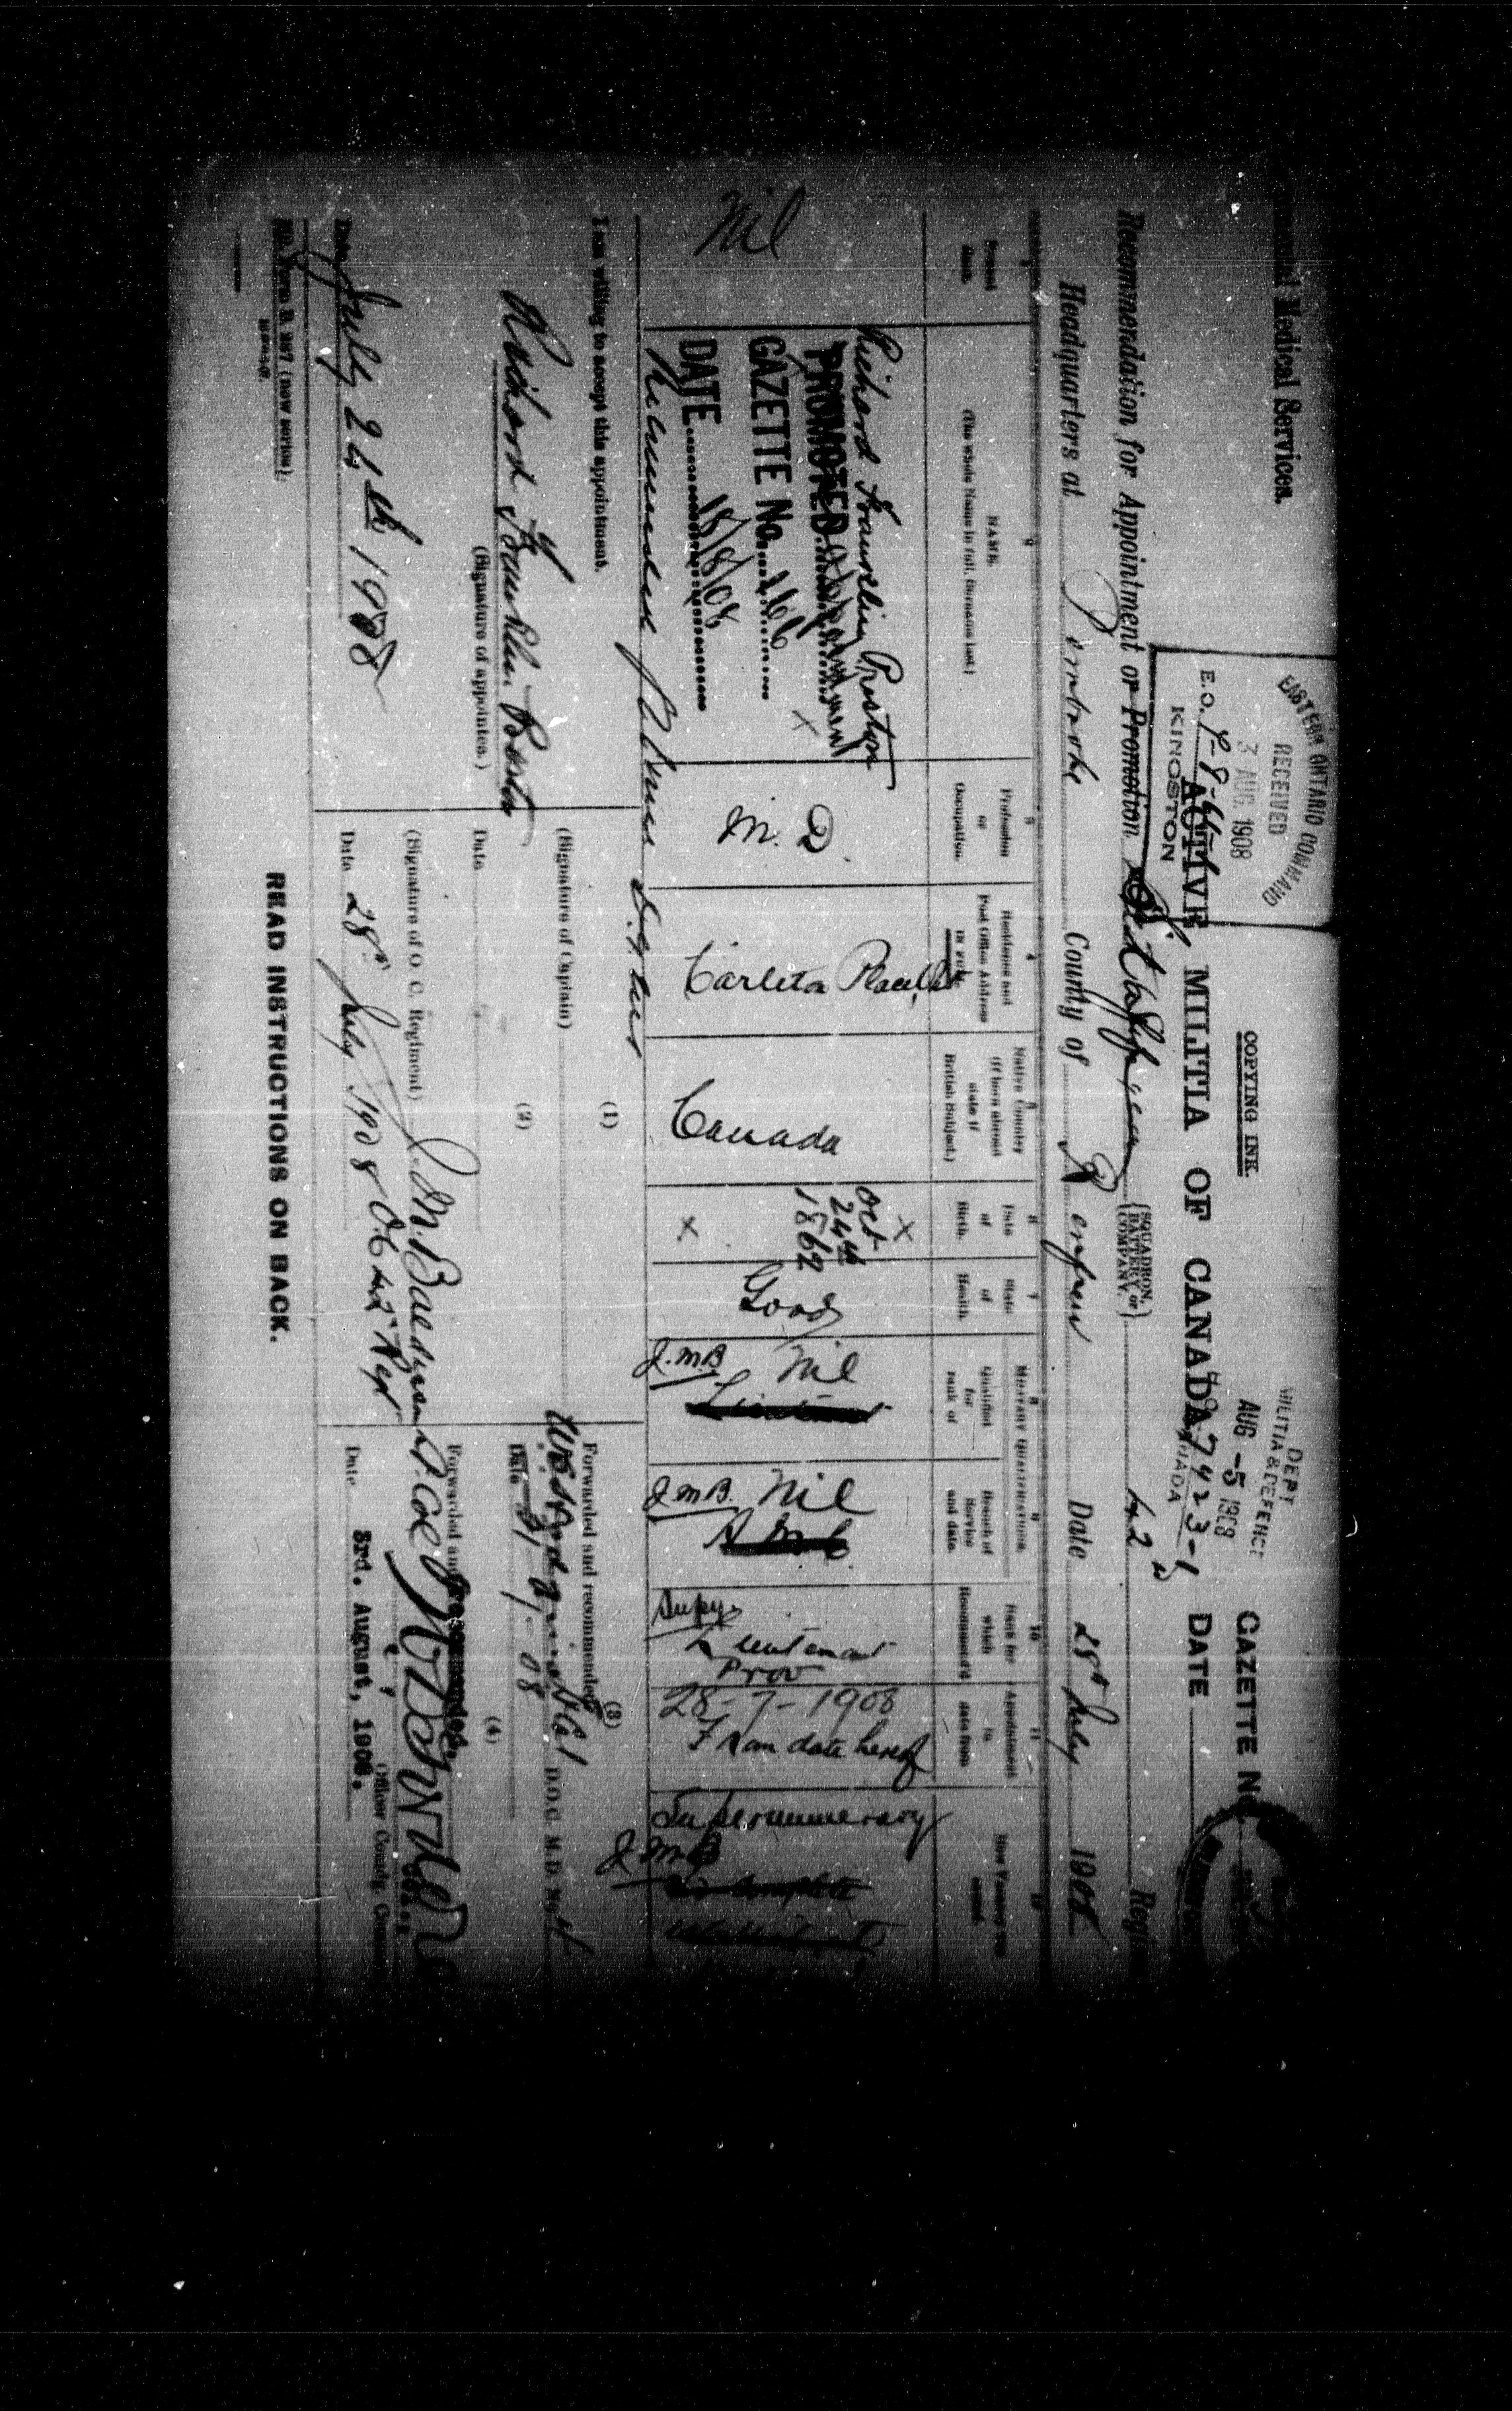 Medical Services.
EASTERN ONTARIO COMMAND
RECEIVED
3 AUG. 1908
E.O.
KINGSTON
COPYING INK.
DEPT
MILITIA & DEFENCE
AUG -5 1908
CANADA
7423-1
GAZETTE No.
DATE
ACTIVE MILITIA OF CANADA
Recommendation for Appointment or Promotion
{SQUADRON, BATTERY, or COMPANY.}
42
Headquarters at Pembroke County of Renfrew Date 28th July 1908
1 Present Rank.
2 NAME. (The whole Name in full, Surname last.)
3 Profession or Occupation.
4 Residence and Post Office Address IN FULL.
5 Native Country (If born abroad state if British Subject.)
6 Date of Birth.
7 State of Health.
MILITARY QUALIFICATIONS.
8 Qualified for rank of
9 Branch of Service and date.
10 Rank for which Recommend'd
11 Appointment to date from
12
Nil
Richard Franklin Preston
PROMOTED
GAZETTE No. 166
DATE 18/8/08
M.D.
Carleton Place
Canada
Oct 24th 1862
Good
Nil
Lieutenant
J.M.B.
Nil
A M C
J.M.B.
Supy.
Lieutenant
Prov
28-7-1908
From date hereof
Supernumerary
J.M.B.
I am willing to accept this appointment.
Richard Franklin Preston
(Signature of appointee.)
Date July 24th 1908
(1)
(Signature of Captain)
Date
(2)
(Signature of O. C. Regiment)
Date 28th July 1908
(3)
Forwarded and recommended
D.O.C. M.D. No. 4
Date 31-7-08
(4)
Forwarded and recommended.
Officer Comdg.
Date 3rd. August, 1908.
M. Form B. 287 (new series).
READ INSTRUCTIONS ON BACK.